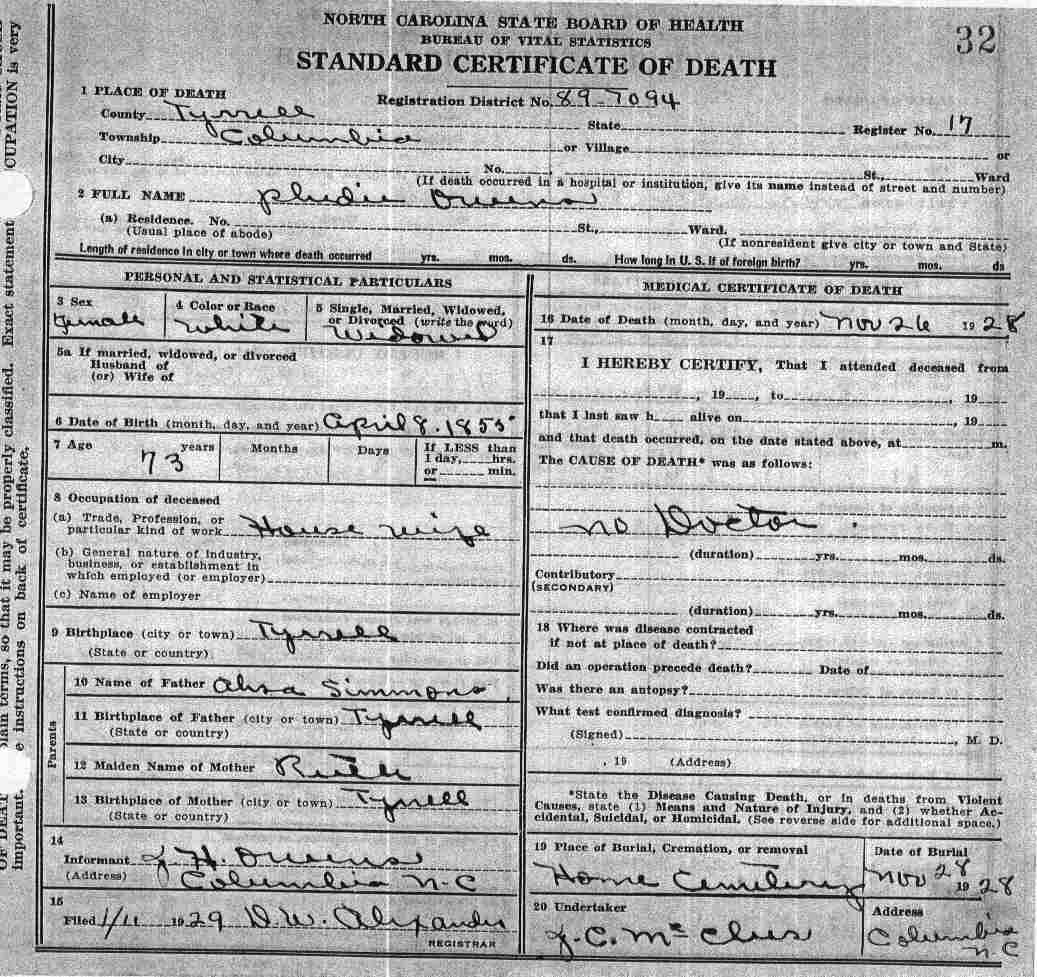 NORTH CAROLINA STATE BOARD OF HEALTH
BUREAU OF VITAL STATISTICS
STANDARD CERTIFICATE OF DEATH
32
1 PLACE OF DEATH
Registration District No. 89-7094
County Tyrrell State Register No. 17
Township Columbia or Village or
City No. St., Ward
(If death occurred in a hospital or institution, give its name instead of street and number)
2 FULL NAME Owens
(a) Residence. No. St., Ward.
(Usual place of abode) (If nonresident give city or town and State)
Length of residence in city or town where death occurred yrs. mos. ds. How long in U. S. if of foreign birth? yrs. mos. ds
PERSONAL AND STATISTICAL PARTICULARS
3 Sex
Female
4 Color or Race
White
5 Single, Married, Widowed,
or Divorced (write the word)
Widowed
5a If married, widowed, or divorced
Husband of
(or) Wife of
6 Date of Birth (month, day, and year) April 8. 1855
7 Age
73 years Months Days
If LESS than
1 day, hrs.
or min.
8 Occupation of deceased
(a) Trade, Profession, or
particular kind of work House wife
(b) General nature of industry,
business, or establishment in
which employed (or employer)
(c) Name of employer
9 Birthplace (city or town) Tyrrell
(State or country)
Parents
10 Name of Father Simmons
11 Birthplace of Father (city or town) Tyrrell
(State or country)
12 Maiden Name of Mother Ruth
13 Birthplace of Mother (city or town) Tyrrell
(State or country)
14
Informant J H. Owens
(Address) Columbia N-C
15
Filed 1/11 1929 D. W. Alexander
REGISTRAR
MEDICAL CERTIFICATE OF DEATH
16 Date of Death (month, day, and year) Nov 26 1928
17
I HEREBY CERTIFY, That I attended deceased from
, 19 , to , 19
that I last saw h alive on , 19
and that death occurred, on the date stated above, at m.
The CAUSE OF DEATH* was as follows:
no Doctor.
(duration) yrs. mos. ds.
Contributory
(SECONDARY)
(duration) yrs. mos. ds.
18 Where was disease contracted
if not at place of death?
Did an operation precede death? Date of
Was there an autopsy?
What test confirmed diagnosis?
(Signed) , M. D.
, 19 (Address)
*State the Disease Causing Death, or in deaths from Violent
Causes, state (1) Means and Nature of Injury, and (2) whether Ac-
cidental, Suicidal, or Homicidal. (See reverse side for additional space.)
19 Place of Burial, Cremation, or removal
Home Cemetery
Date of Burial
Nov 28 1928
20 Undertaker
J. C. Mc
Address
Columbia
N-C
OF DEAT plain terms, so that it may be properly classified. Exact statement CUPATION is very
important. e instructions on back of certificate.